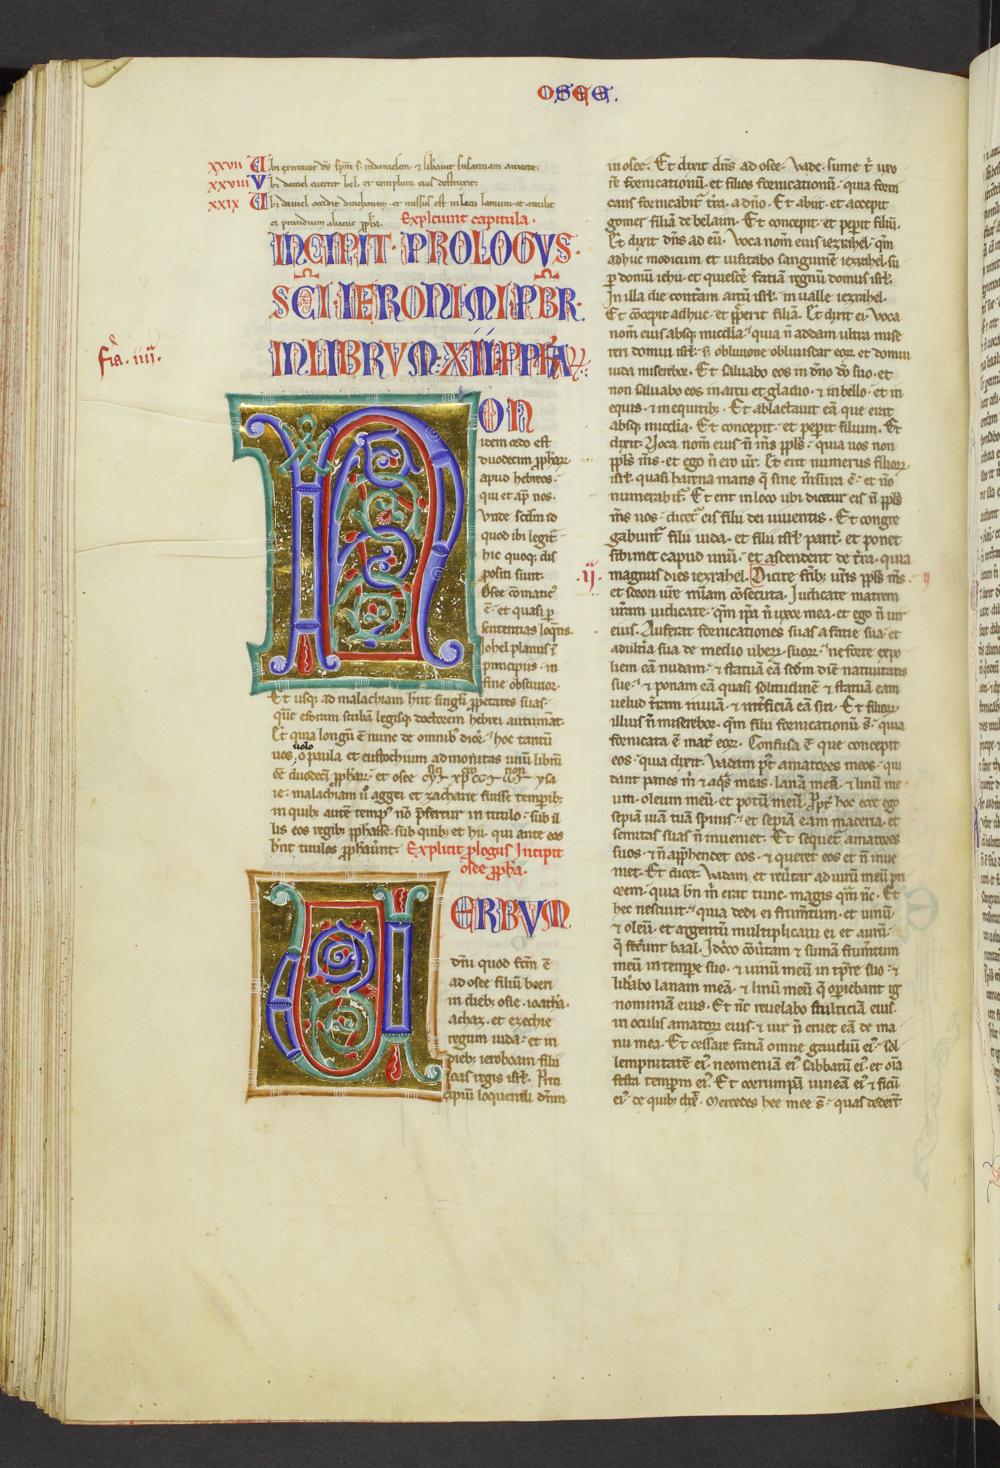 OSEE.
XXVII Ubi excitauit dñs spm̄ s. in danielem. & libauit susannam a morte.
XXVIII Vbi daniel euertit bel. et templum eius destruxit.
XXIX Ubi daniel occidit drachonem. et missus est in lacū leonum. et attulit
ei prandium abacuc ꝓph̄a. Expliciunt capitula.
INCIPIT PROLOGVS.
SC̄I IERONIMI PB̄R.
IN LIBRVM XII PPH̄A
f̄ia. iiij.
NON
idem ordo est
duodecim ꝓphar̄
apud hebreos.
qui et ap̄ nos.
Vnde scd̄m id
quod ibi legit̄
hic quoq; dis
positi sunt.
Osee cōmatic̄
ē. et quasi ꝑ
sententias loq̄ns.
Johel planus ī
principiis. in
fine obscurior.
Et usq; ad malachiam hn̄t singl̄i ꝓpetates suas.
quē esdram scribā legisq; doctorem hebrei autumāt.
Et quia longū ē nunc de omnib; dicē. hoc tantū
uos uolo o paula et eustochium admonitas unū librū
eē duodecī ꝓphar̄. et osee
ie. malachiam ū aggei et zacharie fuisse temporib;
in quib; autē temp⁹ nō p̄fertur in titulo. sub il
lis eos regib; ꝓphasse. sub quib; et hii. qui ante eos
hn̄t titulos ꝓphauer̄t. Explicit ꝓlogus Incipit
osee ꝓph̄a.
VERBVM
dn̄i quod fcm̄ ē
ad osee filiū beeri
in dieb; osie. ioathā.
achaz. et ezechie
regum iuda. et in
dieb; ieroboam filii
ioas regis isrl̄. Prin
cipiū loquendi dn̄m
in osee. Et dixit dn̄s ad osee. Vade. sume t̄ uxo
rē fornicationū. et filios fornicationū. quia forni
cans fornicabit̄ tr̄a. a dn̄o. Et abiit. et accepit
gomer filiā debelaim. Et concepit. et pepit filiū.
Et dixit dn̄s ad eū. Voca nom̄ eius iezrahel. qm̄
adhuc modicum et uisitabo sanguinē iezrahel su
ꝑ domū iehu. et quiescē faciā regnū domus isrl̄.
In illa die conterā arcū isrl̄. in ualle iezrahel.
Et cōcepit adhuc. et peperit filiā. Et dixit ei. Voca
nom̄ eius absq; mīcdia. quia n̄ addam ultra mise
reri domui isrl̄. s; obliuione obliuiscar eor̄. et domui
iuda miserebor. Et saluabo eos in dn̄o dō suo. et
non saluabo eos in arcu et gladio. & in bello. et in
equis. & in equitib;. Et ablactauit eā que erat
absq; mīcdia. Et concepit. et pepit filium. Et
dixit. Voca nom̄ eius n̄ m̄s ppls. quia uos non
ppls m̄s. et ego n̄ ero ur̄. Et erit numerus filior̄
isrl̄. quasi harena maris q̄ sine m̄sura ē. et nō
numerabit̄. Et erit in loco ubi dicetur eis n̄ ppls
m̄s uos. dicet̄ eis filii dei uiuentis. Et congre
gabunt̄ filii iuda. et filii isrl̄ parit̄. et ponet
sibimet capud unū. et ascendent de tr̄a. quia
ij. magnus dies iezrahel. Dicite frīb; ur̄is ppls m̄s.
et sorori ur̄e mīam cōsecuta. Judicate matrem
ur̄am iudicate. qm̄ ip̄a n̄ uxor mea. et ego n̄ uir
eius. Auferat fornicationes suas a facie sua. et
adultia sua de medio uberū suor̄. ne forte expo
liem eā nudam. & statuā eā scd̄m diē natiuitatis
sue. & ponam eā quasi solitudinē. & statuā eam
uelud tr̄am inuiā. & int̄ficiā eā siti. Et filior̄
illius n̄ miserebor. qm̄ filii fornicationū s̄. quia
fornicata ē mat̄ eor̄. Confusa ē que concepit
eos. quia dixit. Vadam p̄t amatores meos. qui
dant panes m̄. & aq̄s meas. lanā meā. & linū me
um. oleum meū. et potū meū. Ppt̄ hoc ecce ego
sepiā uiā tuā spinis. et sepiā eam maceria. et
semitas suas n̄ inueniet. Et sequet̄ amatores
suos. & n̄ app̄hendet eos. & queret eos et n̄ inue
niet. Et dicet. Vadam. et reu̇tar ad uirū meū pri
orem. quia bn̄ m̄ erat tunc. magis qm̄ nc̄. Et
hec nesciuit. quia dedi ei frumtum. et uinū
& oleū. et argentū multiplicaui ei et aurū.
q̄ fecerunt baal. Jdcō cōūtam. & sumā frumtum
meū in tempe suo. & uinū meū in tp̄re suo. &
libābo lanam meā. & linū meū q̄ opiebant ig
nominiā eius. Et nc̄ reuelabo stulticiā eius
in oculis amator̄ eius. & uir n̄ eruet eā de ma
nu mea. Et cessare faciā omne gaudiū ei⁹. sol
lempnitatē ei⁹. neomeniā ei⁹. sabbatū ei⁹. et oīa
festa temporum ei⁹. Et corrumpā uineā ei⁹. & ficū
ei⁹. de quib; dix̄. Mercedes hee mee s̄. quas dedert̄